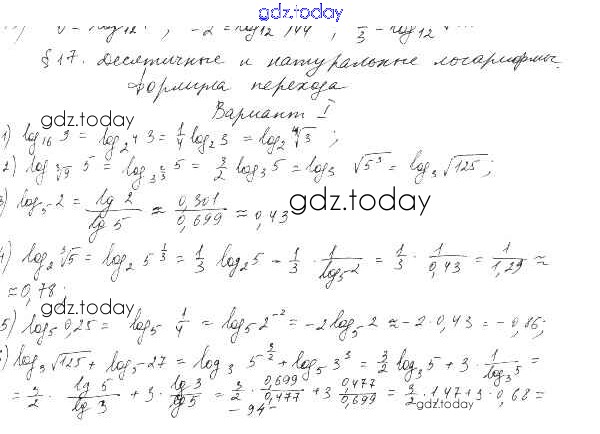 gdz.today
§ 17. Десятичные и натуральные логарифмы.
Формула перехода
Вариант I
gdz.today
1) log₁₆ 3 = log₂⁴ 3 = 1/4 log₂ 3 = log₂ ⁴√3 ;
2) log ∛9 5 = log 3^(2/3) 5 = 3/2 log₃ 5 = log₃ √5³ = log₃ √125 ;
3) log₅ 2 = lg 2 / lg 5 ≈ 0,301 / 0,699 ≈ 0,43
gdz.today
gdz.today
4) log₂ ∛5 = log₂ 5^(1/3) = 1/3 log₂ 5 = 1/3 · 1/log₅ 2 = 1/3 · 1/0,43 = 1/1,29 ≈
≈ 0,78 ;
gdz.today
5) log₅ 0,25 = log₅ 1/4 = log₅ 2⁻² = -2 log₅ 2 ≈ -2 · 0,43 = -0,86 ;
log₃ √125 + log₅ 27 = log₃ 5^(3/2) + log₅ 3³ = 3/2 log₃ 5 + 3 · 1/log₃ 5 =
= 3/2 · lg 5 / lg 3 + 3 · lg 3 / lg 5 = 3/2 · 0,699 / 0,477 + 3 0,477 / 0,699 = 3/2 · 1,47 + 3 · 0,68 =
gdz.today
- 94 -